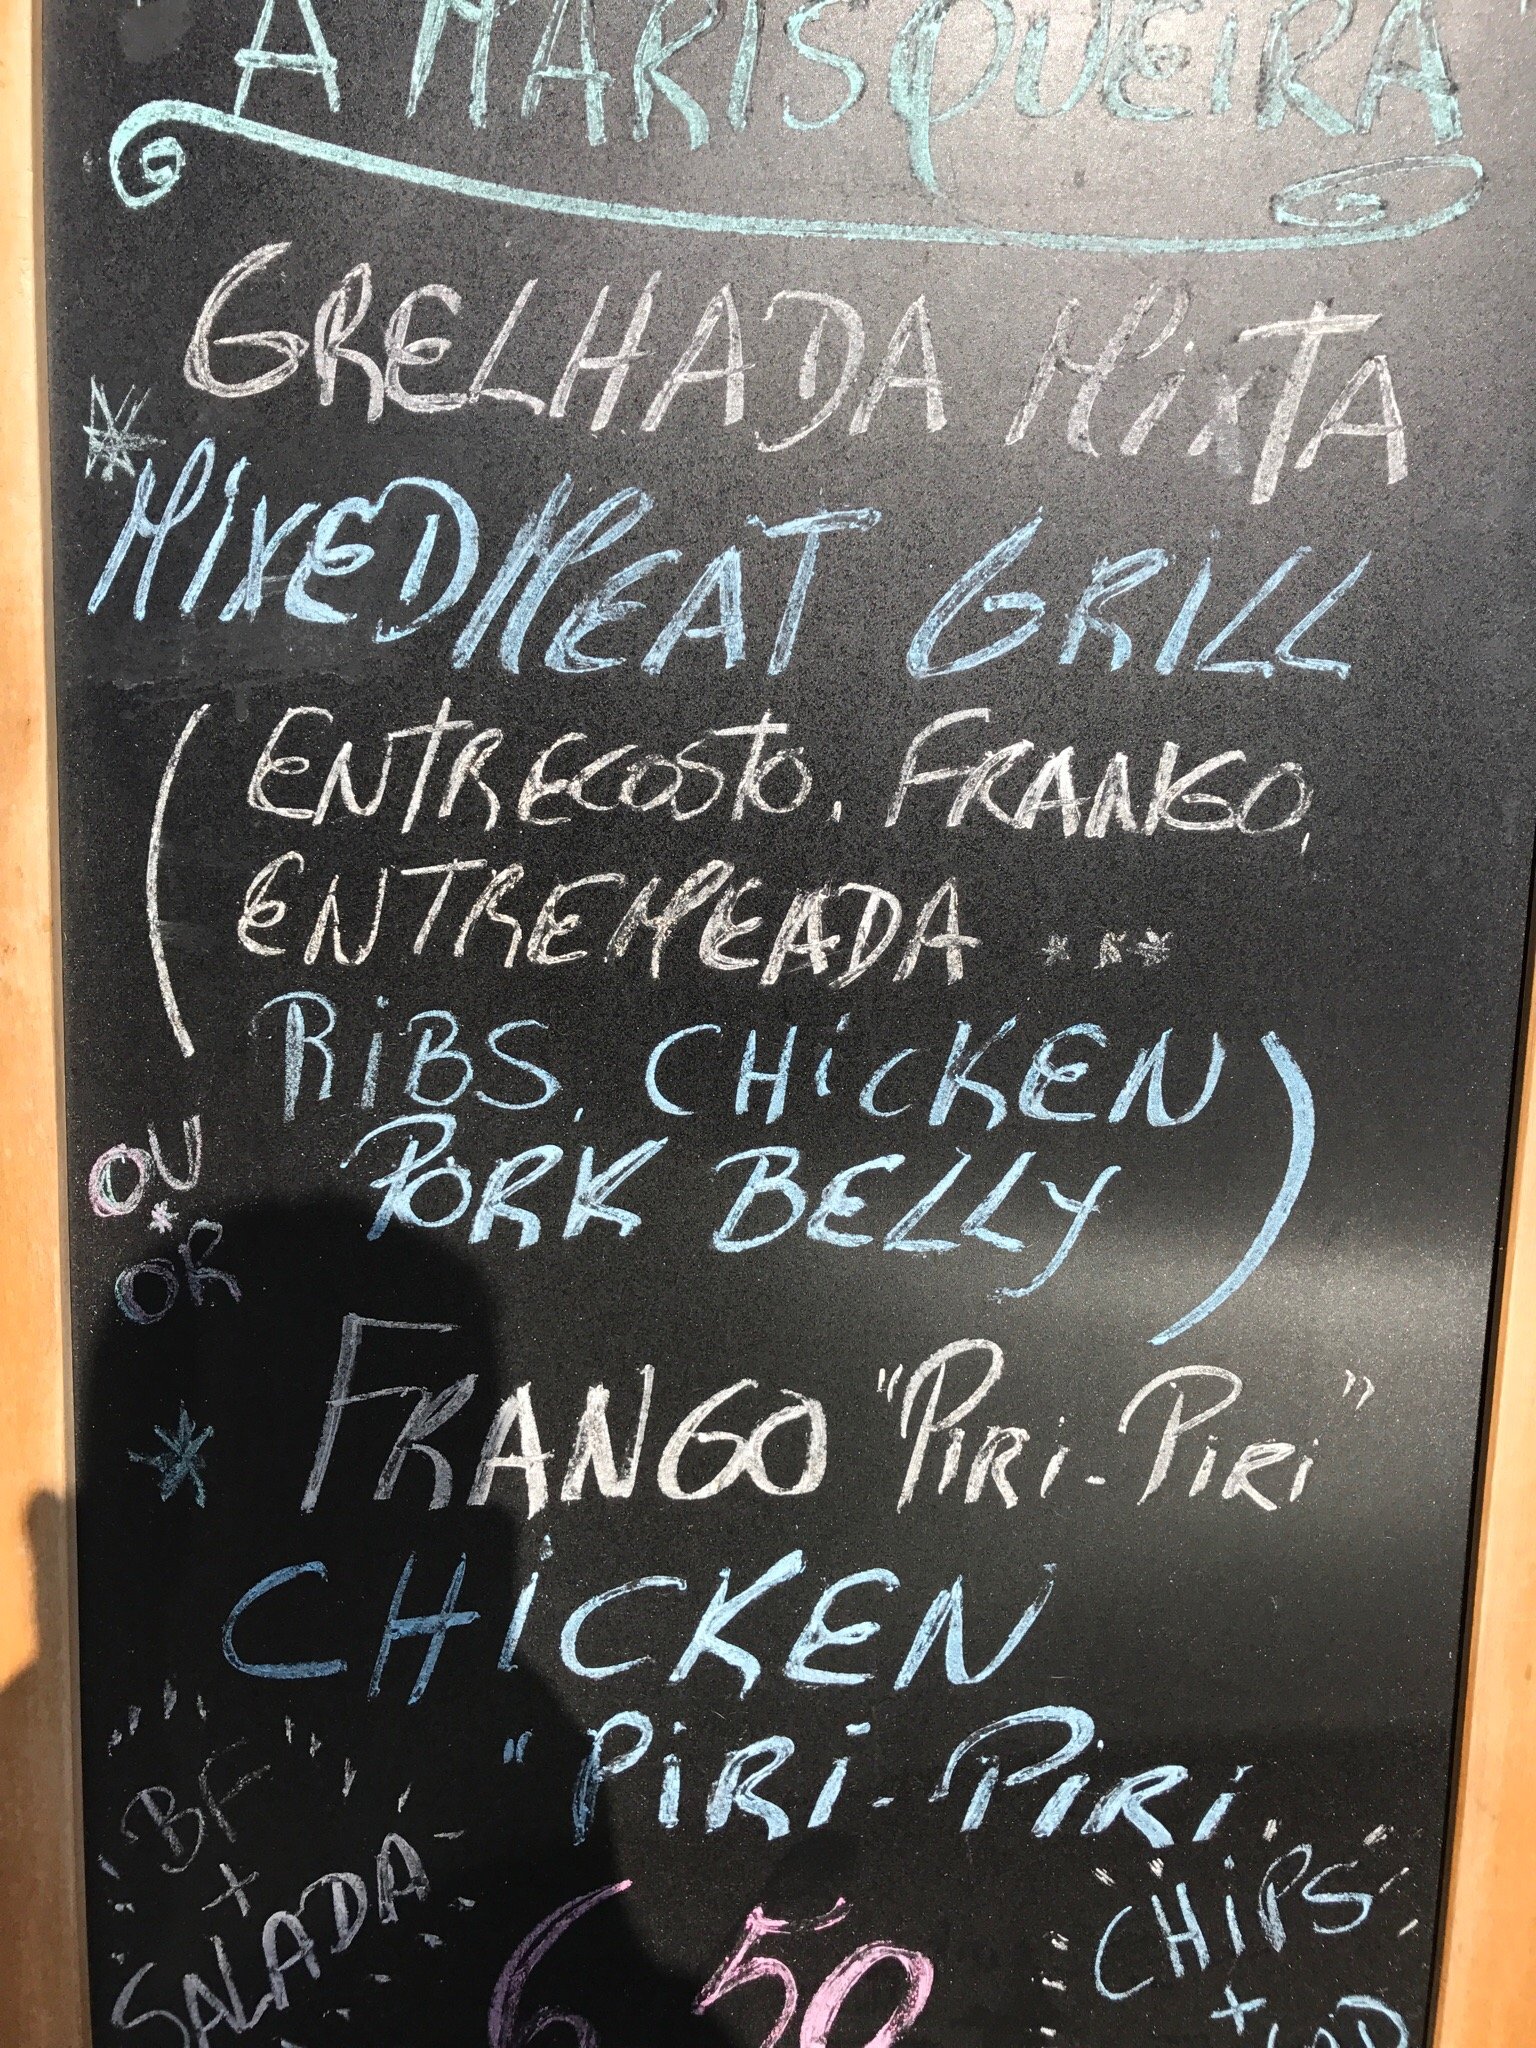 A MARISQUEIRA
GRELHADA MixTA
MiXED MEAT GRiLL
(ENTRECOSTO, FRANGO,
ENTREMEADA
RiBS, CHiCKEN
PORK BELLY)
OU
OR
FRANGO "PiRi-PiRi"
CHiCKEN
"PiRi-PiRi
BF
+
SALADA
6.50
CHiPS
+